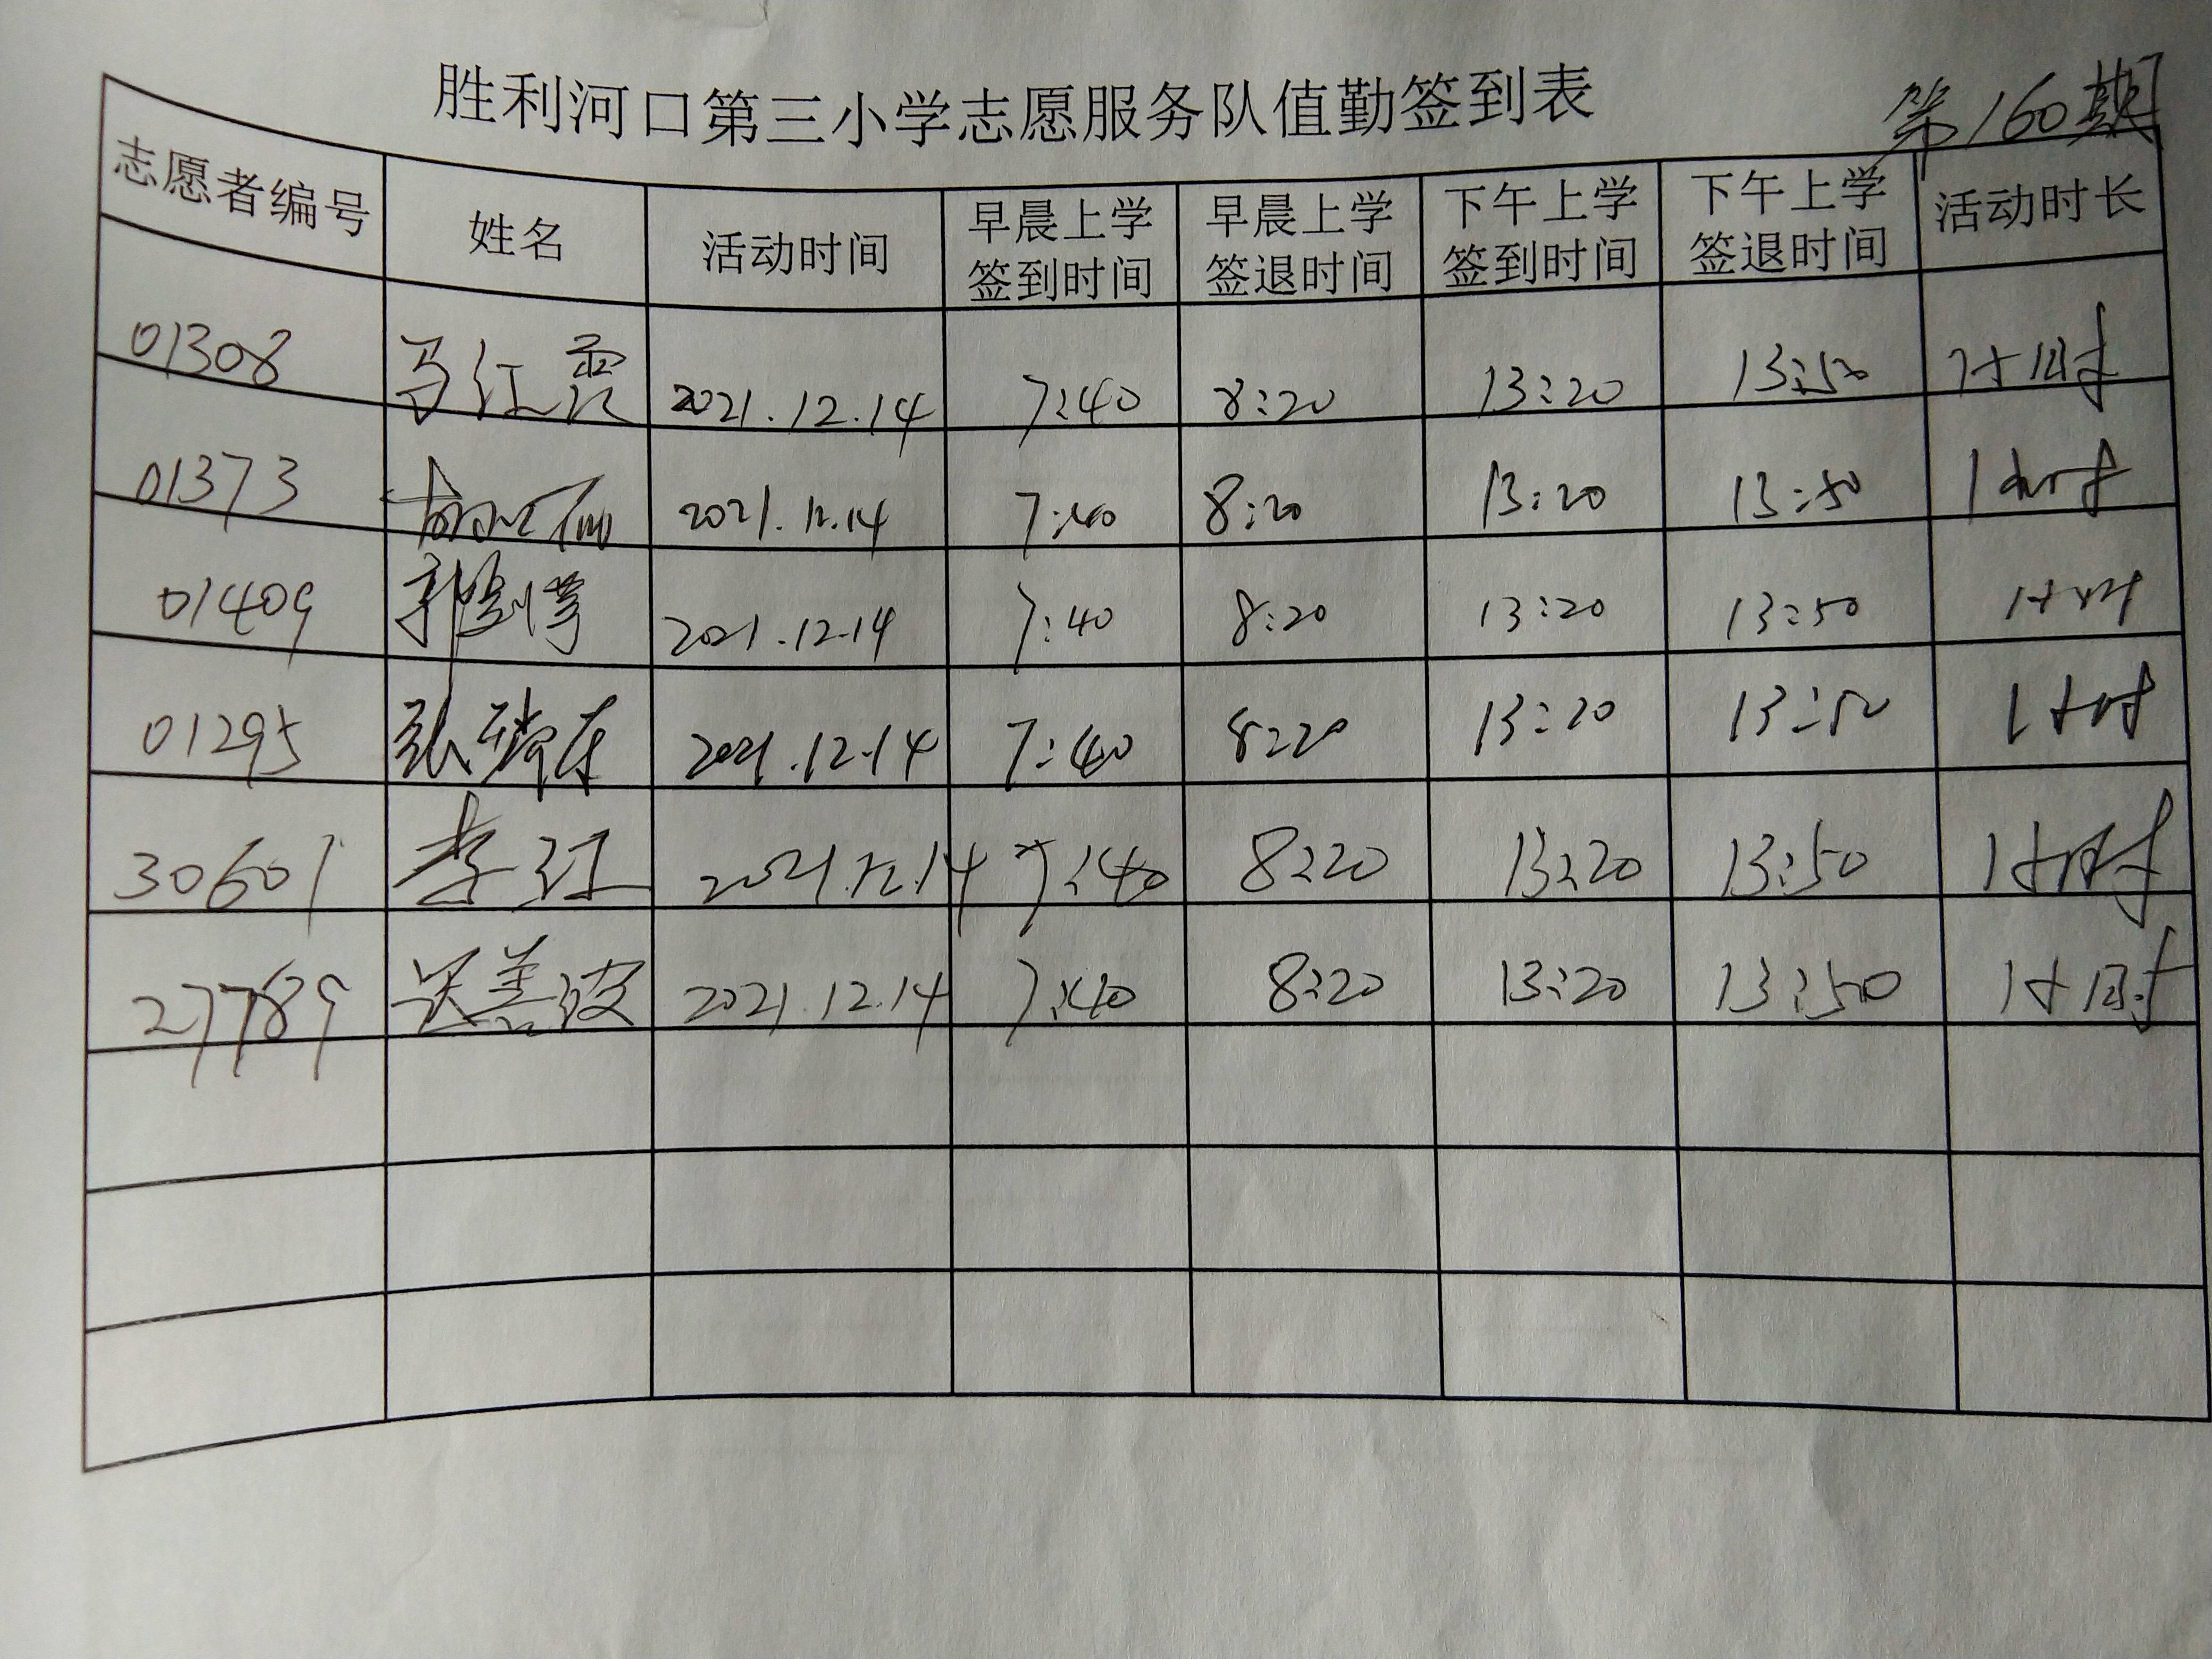 胜利河口第三小学志愿服务队值勤签到表
第160期
志愿者编号 姓名 活动时间 早晨上学签到时间 早晨上学签退时间 下午上学签到时间 下午上学签退时间 活动时长
01308 马红霞 2021.12.14 7:40 8:20 13:20 13:50 1小时
01373 2021.12.14 7:40 8:20 13:20 13:50 1小时
01409 2021.12.14 7:40 8:20 13:20 13:50 1小时
01295 张 2021.12.14 7:40 8:20 13:20 13:50 1小时
30601 李红 2021.12.14 7:40 8:20 13:20 13:50 1小时
27789 善波 2021.12.14 7:40 8:20 13:20 13:50 1小时